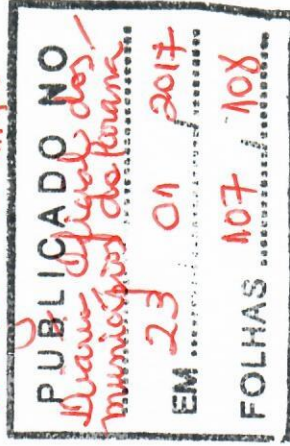 PUBLICADO NO
Diario Oficial dos
municípios do Paraná
EM 23 / 01 / 2017
FOLHAS 107 / 108